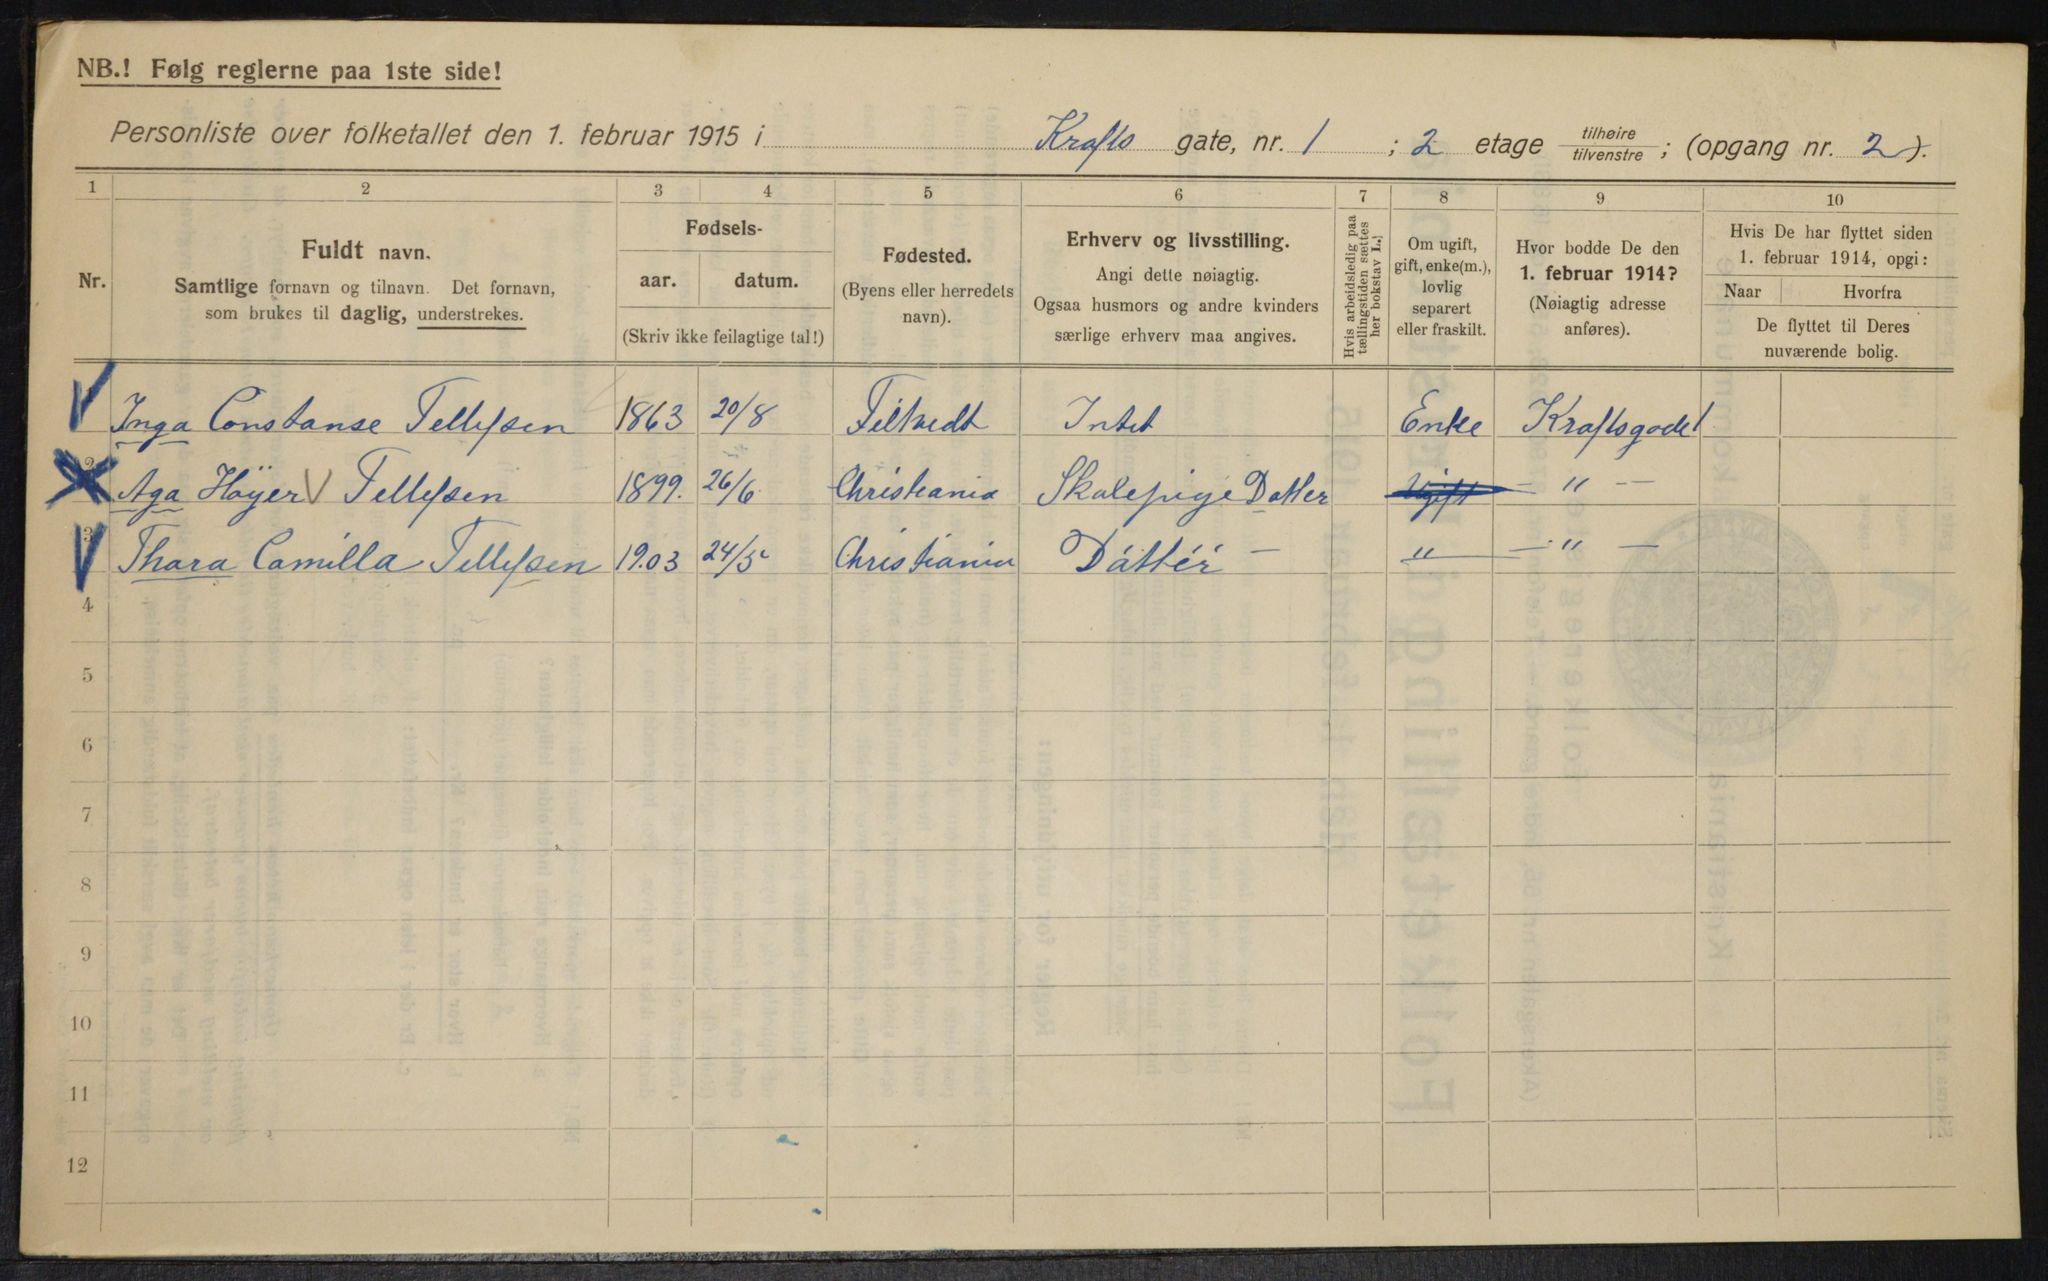 NB.! Følg reglerne paa 1ste side!
Personliste over folketallet den 1. februar 1915 i Krafts gate, nr. 1 ; 2 etage tilhøire/tilvenstre ; (opgang nr. 2).
1 2 3 4 5 6 7 8 9 10
Nr.
Fuldt navn.
Samtlige fornavn og tilnavn. Det fornavn,
som brukes til daglig, understrekes.
Fødsels-
aar. datum.
(Skriv ikke feilagtige tal!)
Fødested.
(Byens eller herredets
navn).
Erhverv og livsstilling.
Angi dette nøiagtig.
Ogsaa husmors og andre kvinders
særlige erhverv maa angives.
Hvis arbeidsledig paa
tællingstiden sættes
her bokstav L.
Om ugift,
gift, enke(m.),
lovlig
separert
eller fraskilt.
Hvor bodde De den
1. februar 1914?
(Nøiagtig adresse
anføres).
Hvis De har flyttet siden
1. februar 1914, opgi:
Naar Hvorfra
De flyttet til Deres
nuværende bolig.
Inga Constanse Tellefsen 1863 20/8 Filtvedt Intet Enke Kraftsgade 1
2 Aga Höyer Tellefsen 1899. 26/6 Christiania Skolepige Datter Ugift — " —
3 Thora Camilla Tellefsen 1903 24/5 Christiania Datter — " — " —
4
5
6
7
8
9
10
11
12